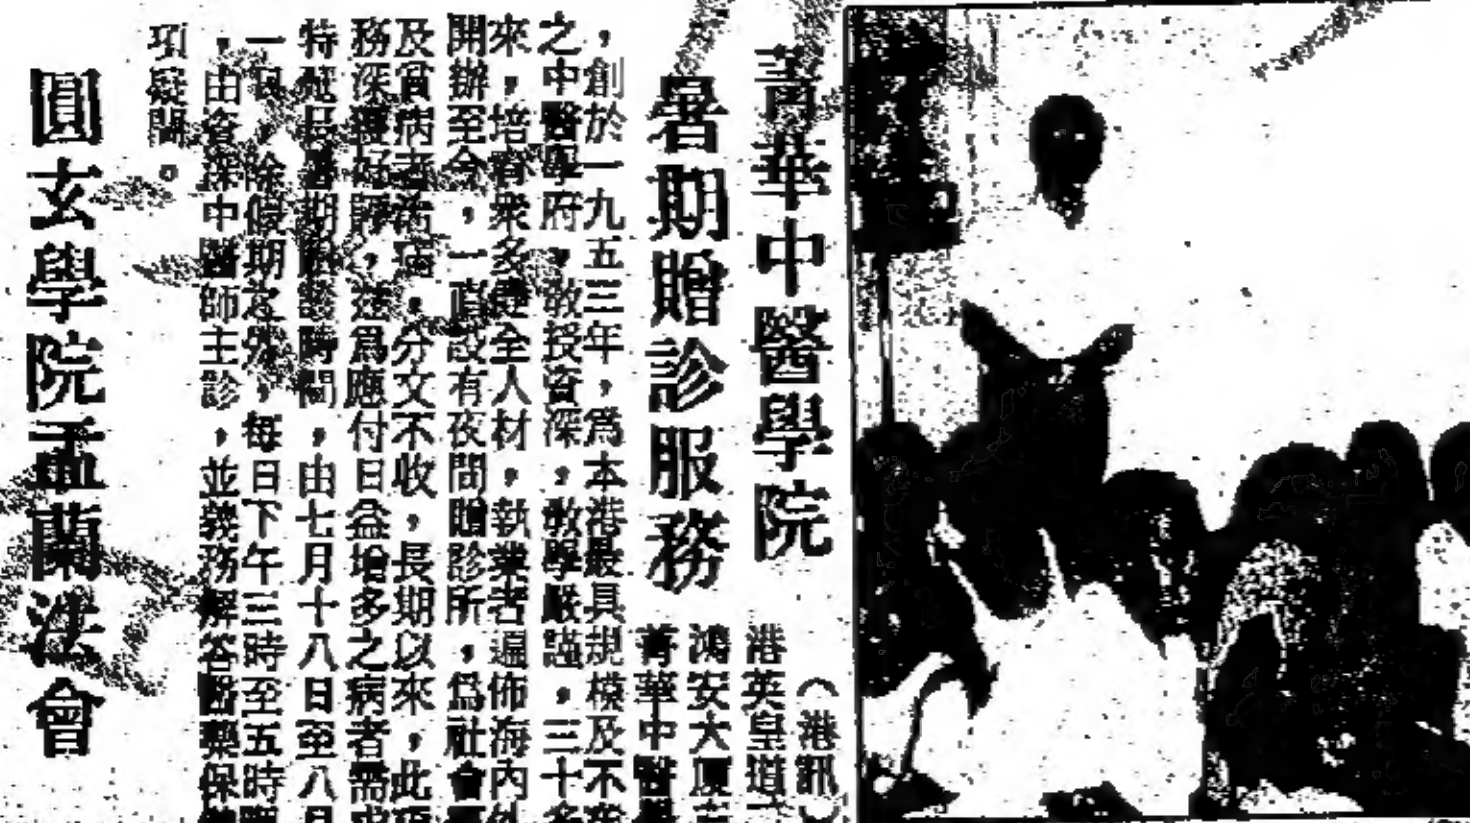 菁華中醫學院
暑期贈診服務
（港訊）
港英皇道
鴻安大厦
菁華中醫學
，創於一九五三年，爲本港最具規模及不
之中醫學府，教授資深，教學嚴謹，三十多
來，培育衆多健全人材，執業者遍佈海內外
開辦至今，一直設有夜間贈診所，爲社會
及貧病者，分文不收，長期以來，此項
務深獲好評，爲應付日益增多之病者需求
特於暑期時間，由七月十八日至八月
，除假期之外，每日下午三時至五時
，由資深中醫師主診，並義務解答醫藥保
項疑問。
圓玄學院盂蘭法會